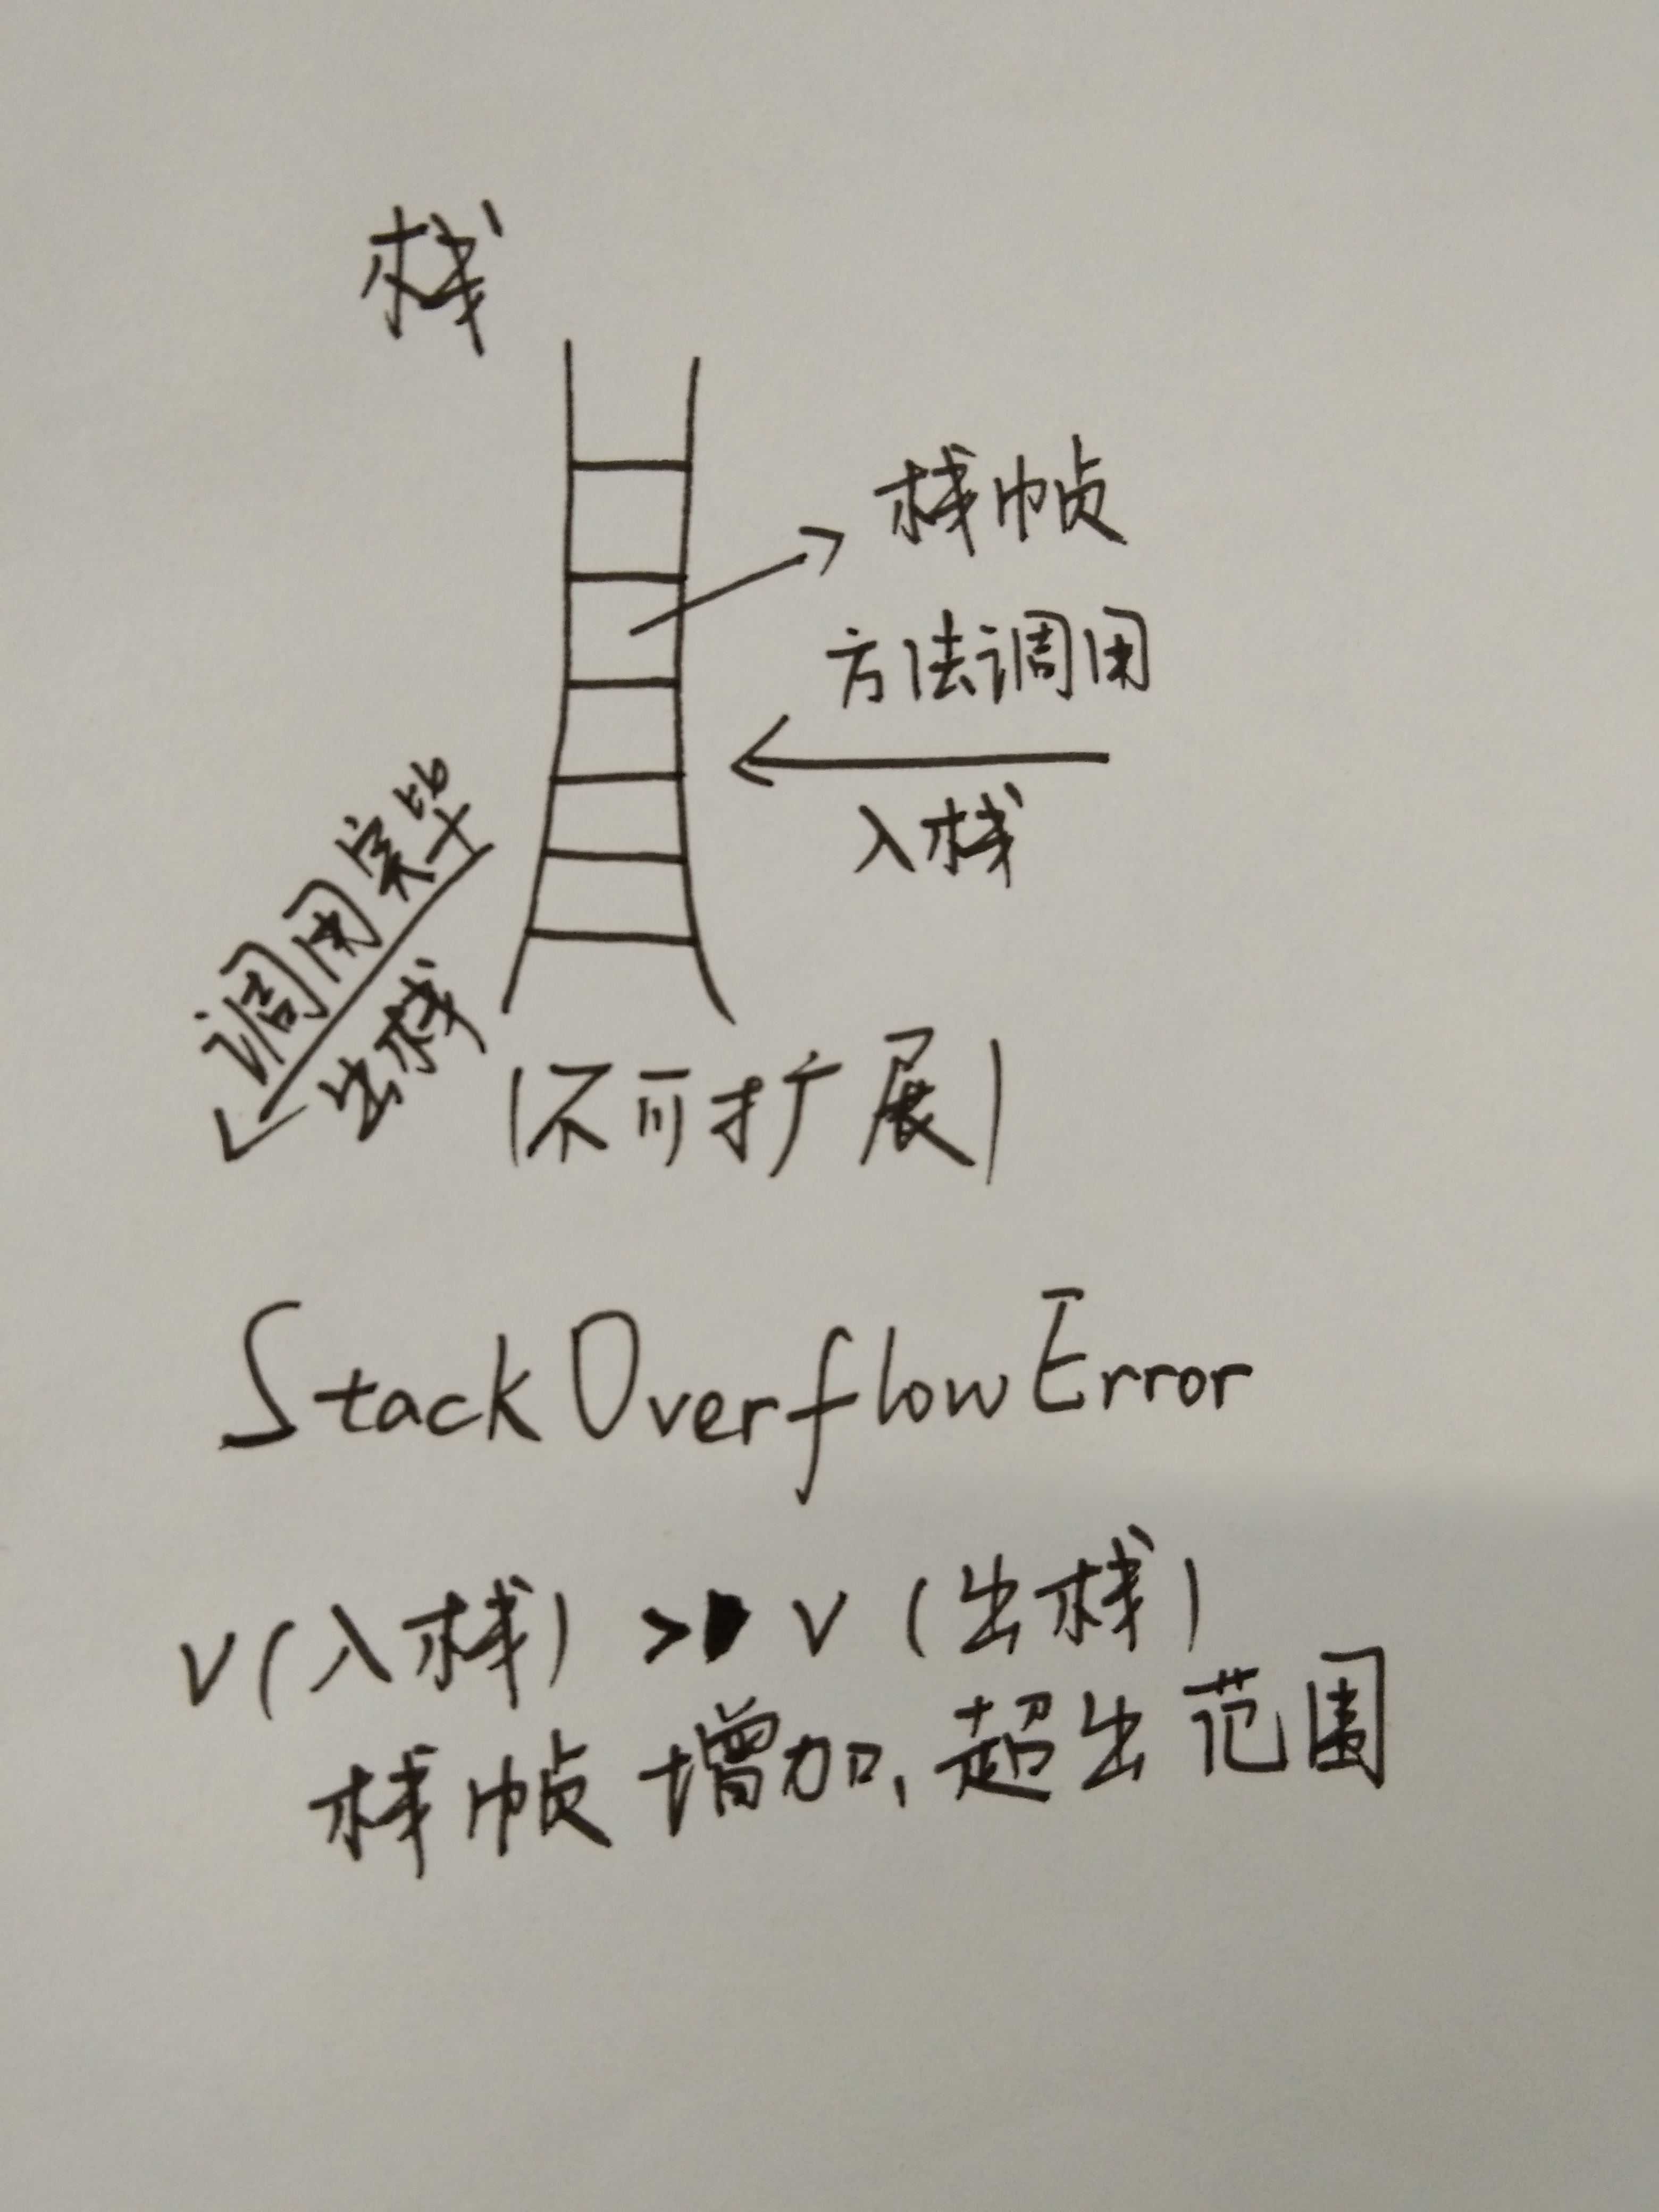 栈
栈帧
方法调用
入栈
调用完毕
出栈
(不可扩展)
StackOverflowError
v(入栈) > v(出栈)
栈帧增加,超出范围